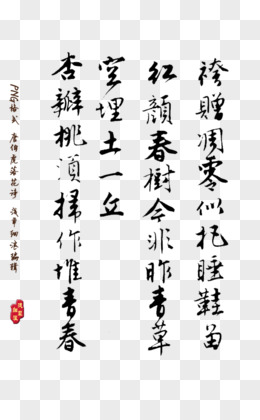 袴贈凋零似 睡鞋留
红顏春樹今非昨青草
空埋土一丘
杏瓣桃須掃作堆青春
PNG格式 唐伯虎落花诗